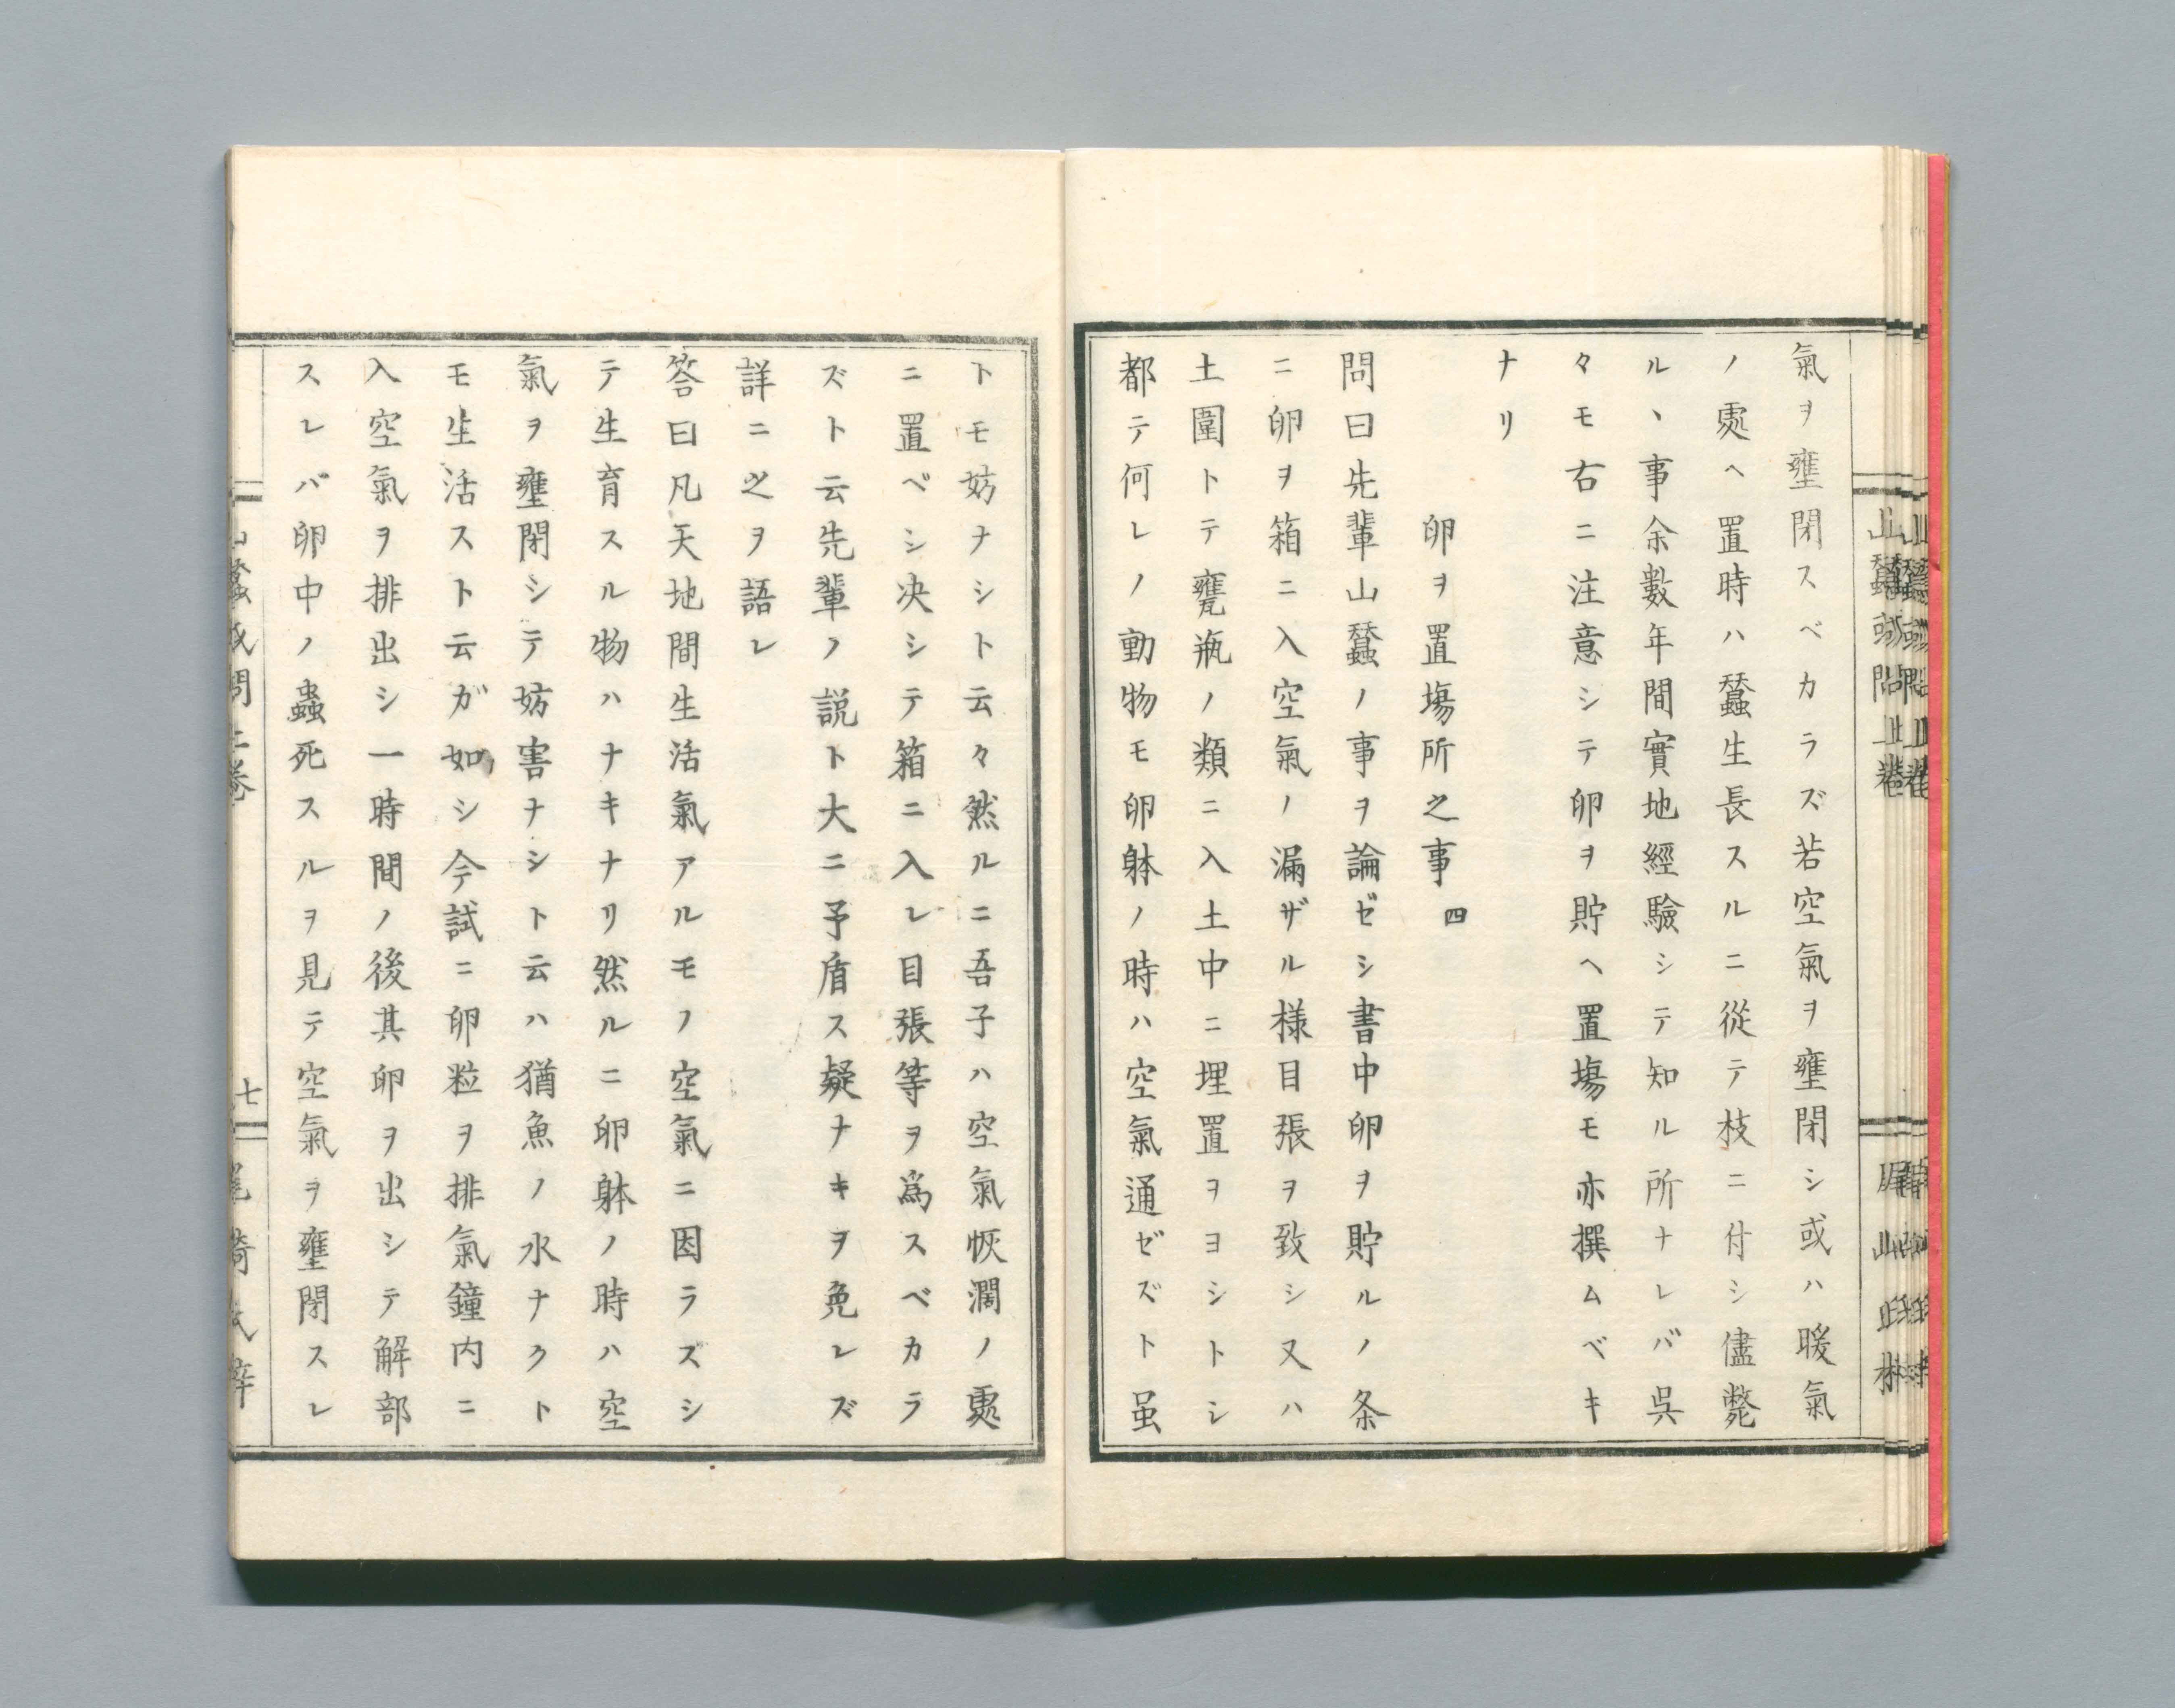 氣ヲ壅閉スベカラズ若空氣ヲ壅閉シ或ハ暖氣
ノ処ヘ置時ハ蠶生長スルニ從テ枝ニ付シ儘斃
ルヽ事余數年間實地經驗シテ知ル所ナレバ呉
々モ右ニ注意シテ卵ヲ貯ヘ置塲モ亦撰ムベキ
ナリ
卵ヲ置塲所之事 四
問曰先輩山蠶ノ事ヲ論ゼシ書中卵ヲ貯ルノ条
ニ卵ヲ箱ニ入空氣ノ漏ザル様目張ヲ致シ又ハ
土圍トテ甕瓶ノ類ニ入土中ニ埋置ヲヨシトシ
都テ何レノ動物モ卵躰ノ時ハ空氣通ゼズト虽
トモ妨ナシト云々然ルニ吾子ハ空氣恢濶ノ処
ニ置ベシ决シテ箱ニ入レ目張等ヲ爲スベカラ
ズト云先輩ノ説ト大ニ予盾ス疑ナキヲ免レズ
詳ニ之ヲ語レ
答曰凡天地間生活氣アルモノ空氣ニ因ラズシ
テ生育スル物ハナキナリ然ルニ卵躰ノ時ハ空
氣ヲ壅閉シテ妨害ナシト云ハ猶魚ノ水ナクト
モ生活スト云ガ如シ今試ニ卵粒ヲ排氣鐘内ニ
入空氣ヲ排出シ一時間ノ後其卵ヲ出シテ解部
スレバ卵中ノ蟲死スルヲ見テ空氣ヲ壅閉スレ
七